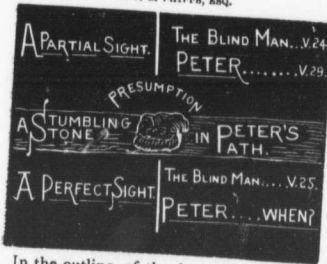 ESQ.
A PARTIAL SIGHT.
THE BLIND MAN...V.24
PETER........V.29
PRESUMPTION
A STUMBLING STONE IN PETER'S PATH.
A PERFECT SIGHT
THE BLIND MAN....V.25.
PETER....WHEN?
In the outline of the